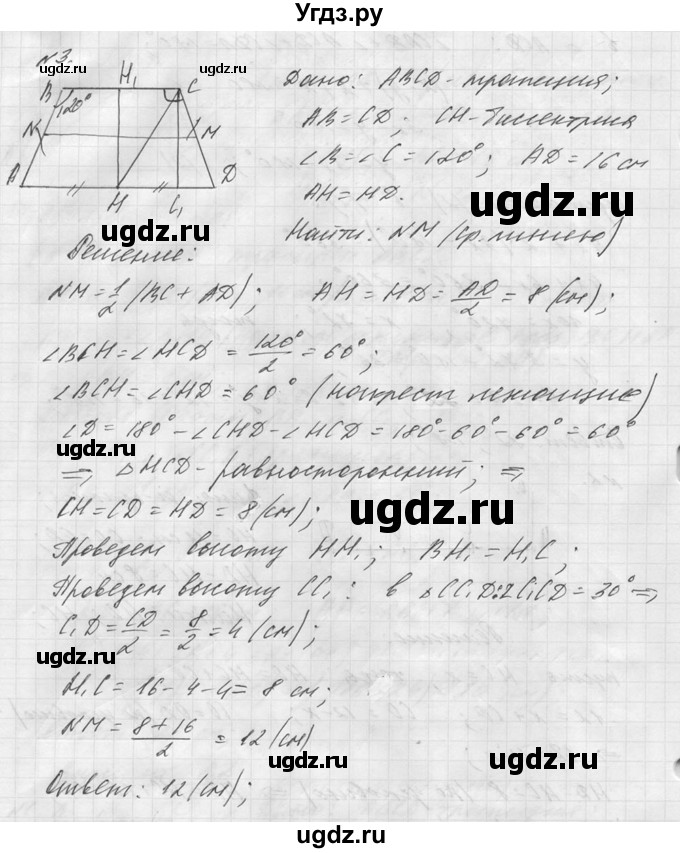 Угдз.ру
№3.
B H₁ C
120°
N M
A H C₁ D
Дано: ABCD - трапеция;
AB = CD; CH - биссектриса
∠B = ∠C = 120°; AD = 16 см
AH = HD.
Найти: NM (ср. линию)
Решение:
NM = 1/2 (BC + AD); AH = HD = AD/2 = 8 (см);
∠BCH = ∠HCD = 120°/2 = 60°;
∠BCH = ∠CHD = 60° (накрест лежащие)
∠D = 180° - ∠CHD - ∠HCD = 180° - 60° - 60° = 60°
⇒ △HCD - равносторонний; ⇒
CH = CD = HD = 8 (см);
Проведем высоту HH₁; BH₁ = H₁C;
Проведем высоту CC₁: в △CC₁D: ∠C₁CD = 30° ⇒
C₁D = CD/2 = 8/2 = 4 (см);
H₁C = 16 - 4 - 4 = 8 см;
NM = (8 + 16)/2 = 12 (см)
Ответ: 12 (см);
ugdz.ru
ugdz.ru
ugdz.ru
ugdz.ru
ugdz.ru
ugdz.ru
ugdz.ru
ugdz.ru
ugdz.ru
ugdz.ru